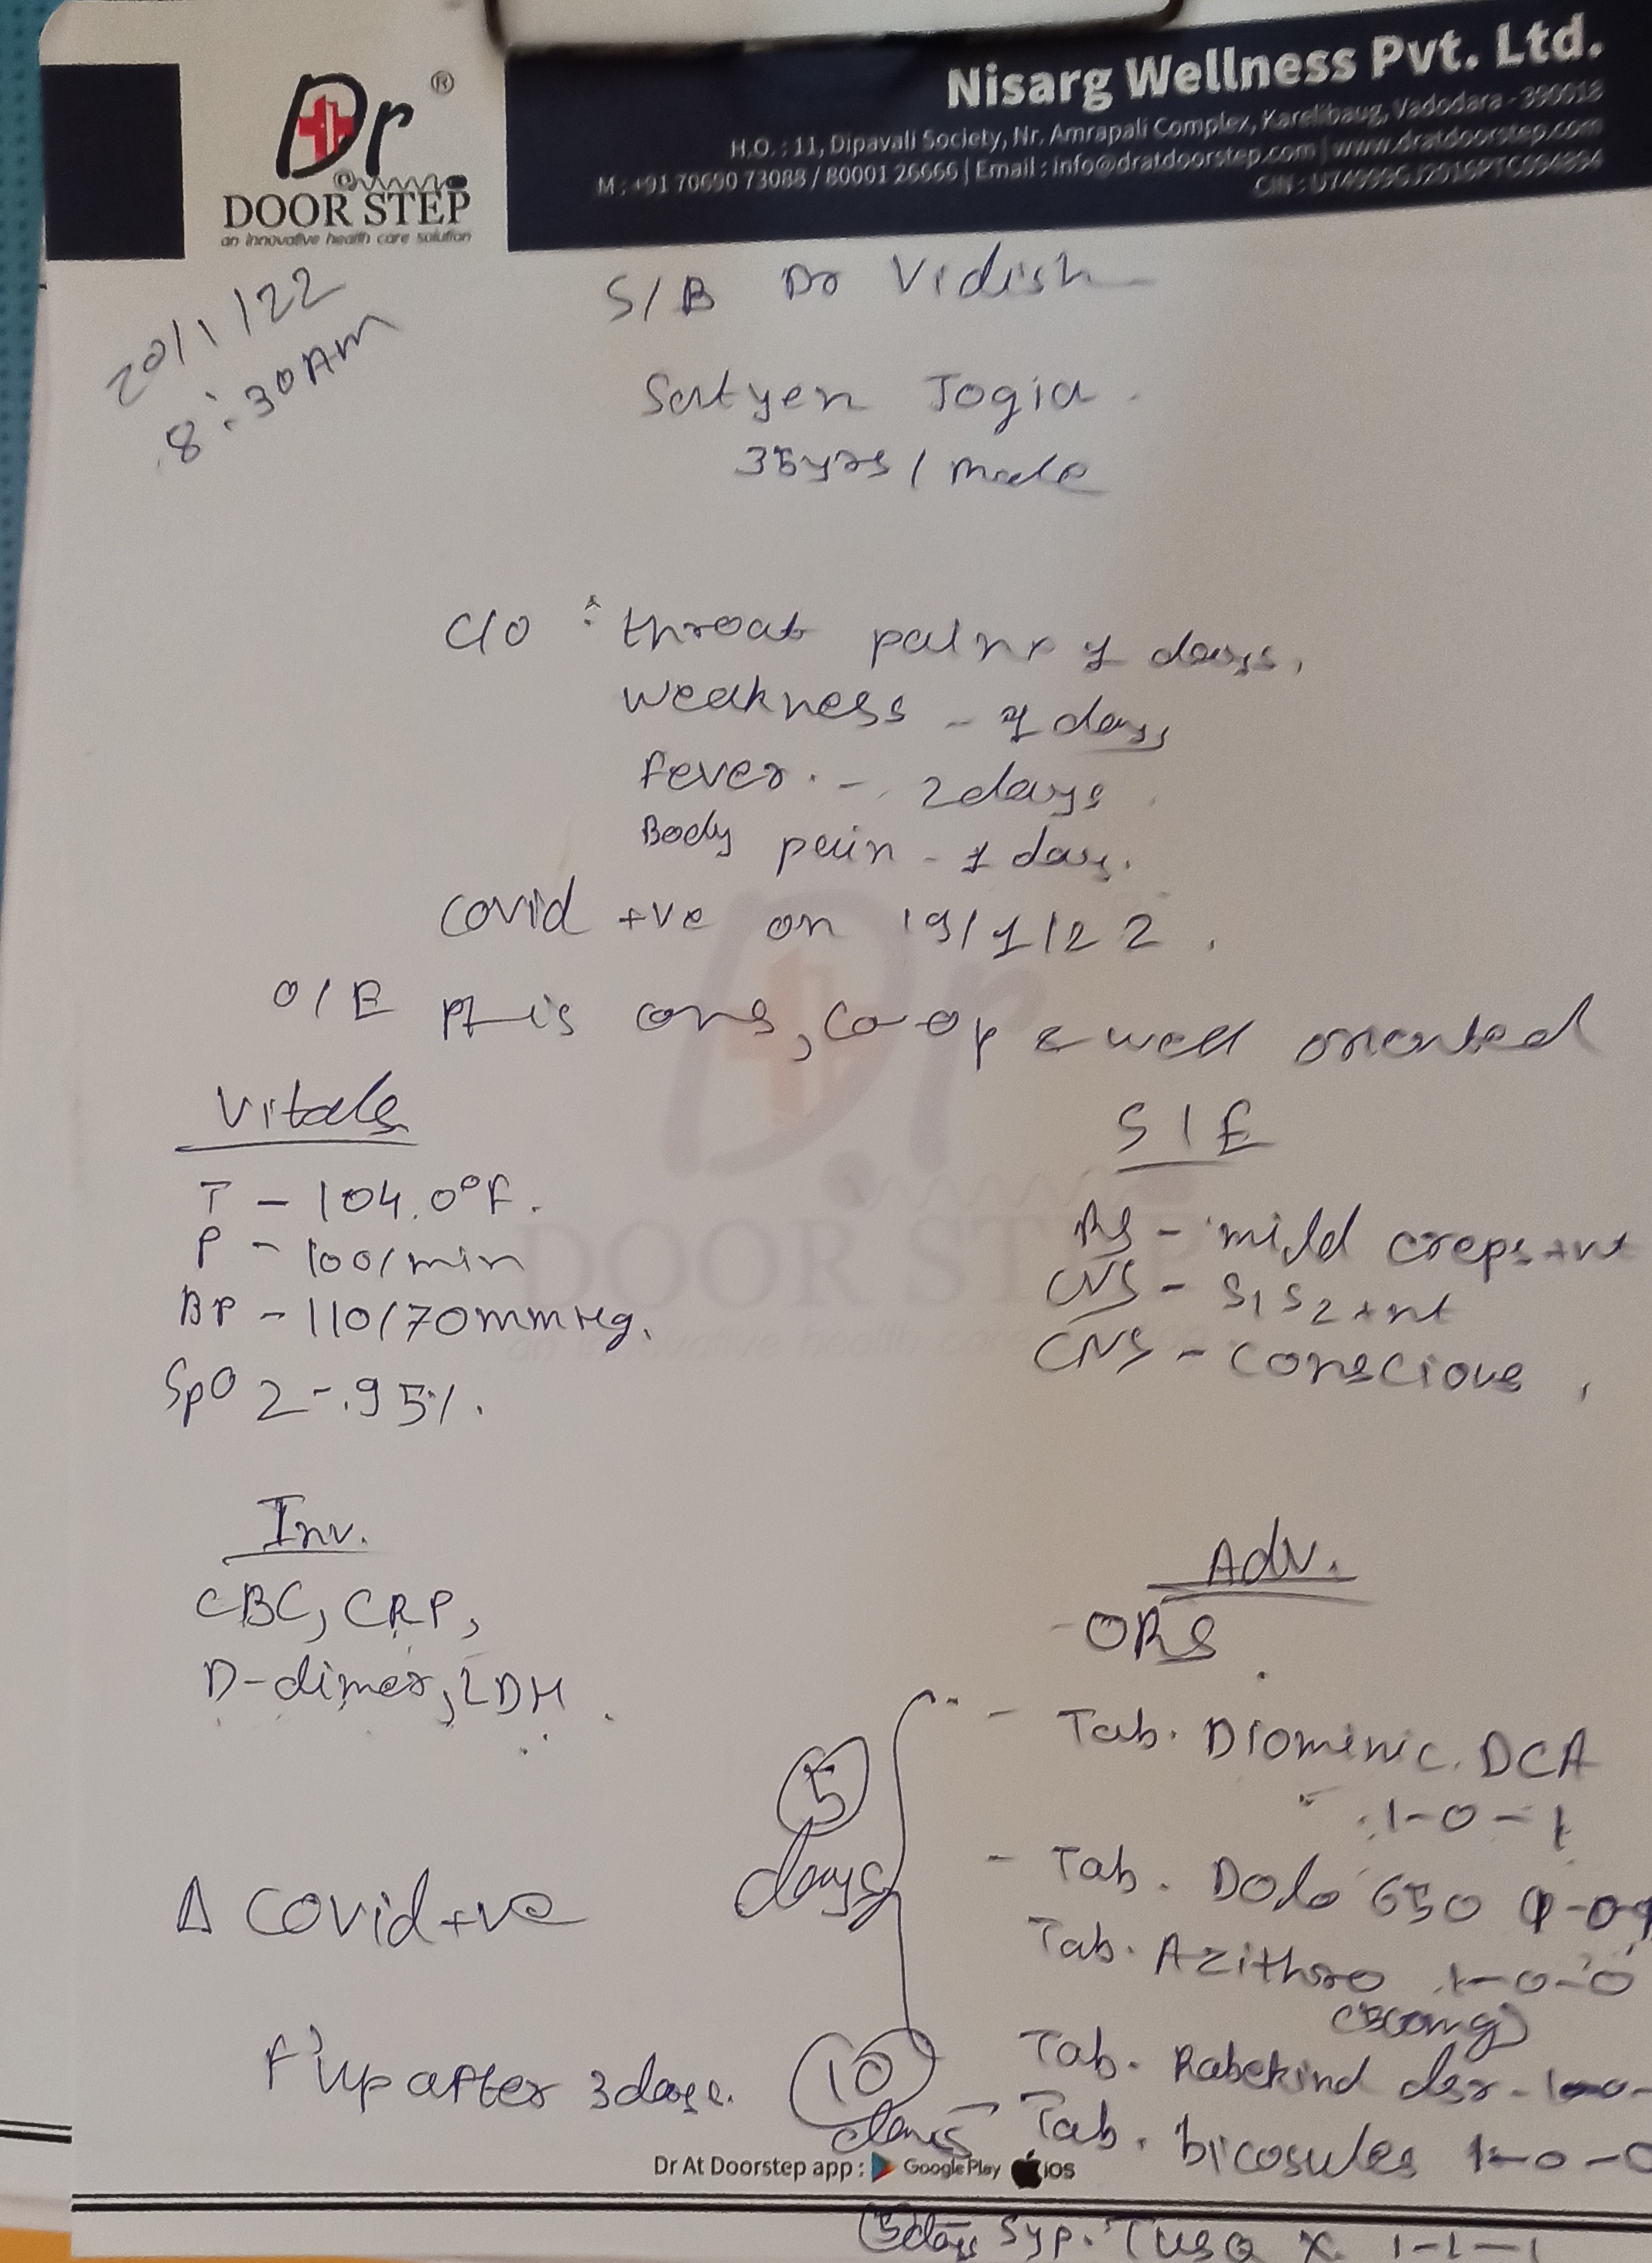 Dr ®
DOOR STEP
an innovative health care solution
Nisarg Wellness Pvt. Ltd.
H.O. : 11, Dipavali Society, Nr. Amrapali Complex, Karelibaug, Vadodara - 390018
M : +91 70690 73088 / 80001 26666 | Email : info@dratdoorstep.com | www.dratdoorstep.com
CIN : U74999GJ2016PTC094894
20/1/22
8:30AM
S/B Dr Vidish
Satyen Jogia.
35yrs / male
C/O : throat pain 1 days,
weakness - 1 days
fever. - 2days
Body pain - 1 day.
covid +ve on 19/1/22.
O/E Pt is cons, co-op & well oriented
Vitals
T - 104.0°F.
P - 100/min
BP - 110/70mmHg.
SpO2 - 95%.
S/E
RS - mild creps +nt
CVS - S1S2 +nt
CNS - conscious,
Inv.
CBC, CRP,
D-dimer, LDH.
Δ Covid +ve
F'up after 3days.
Adv.
- ORS
5 days
- Tab. Diominic. DCA
1-0-1
- Tab. Dolo 650
Tab. Azithro 1-0-0
(500mg)
Tab. Rabekind dsr - 1-0-
10 days
- Tab. bicosules 1-0-0
Dr At Doorstep app : Google Play iOS
5days Syp. TusQ X 1-1-1
DOOR STEP